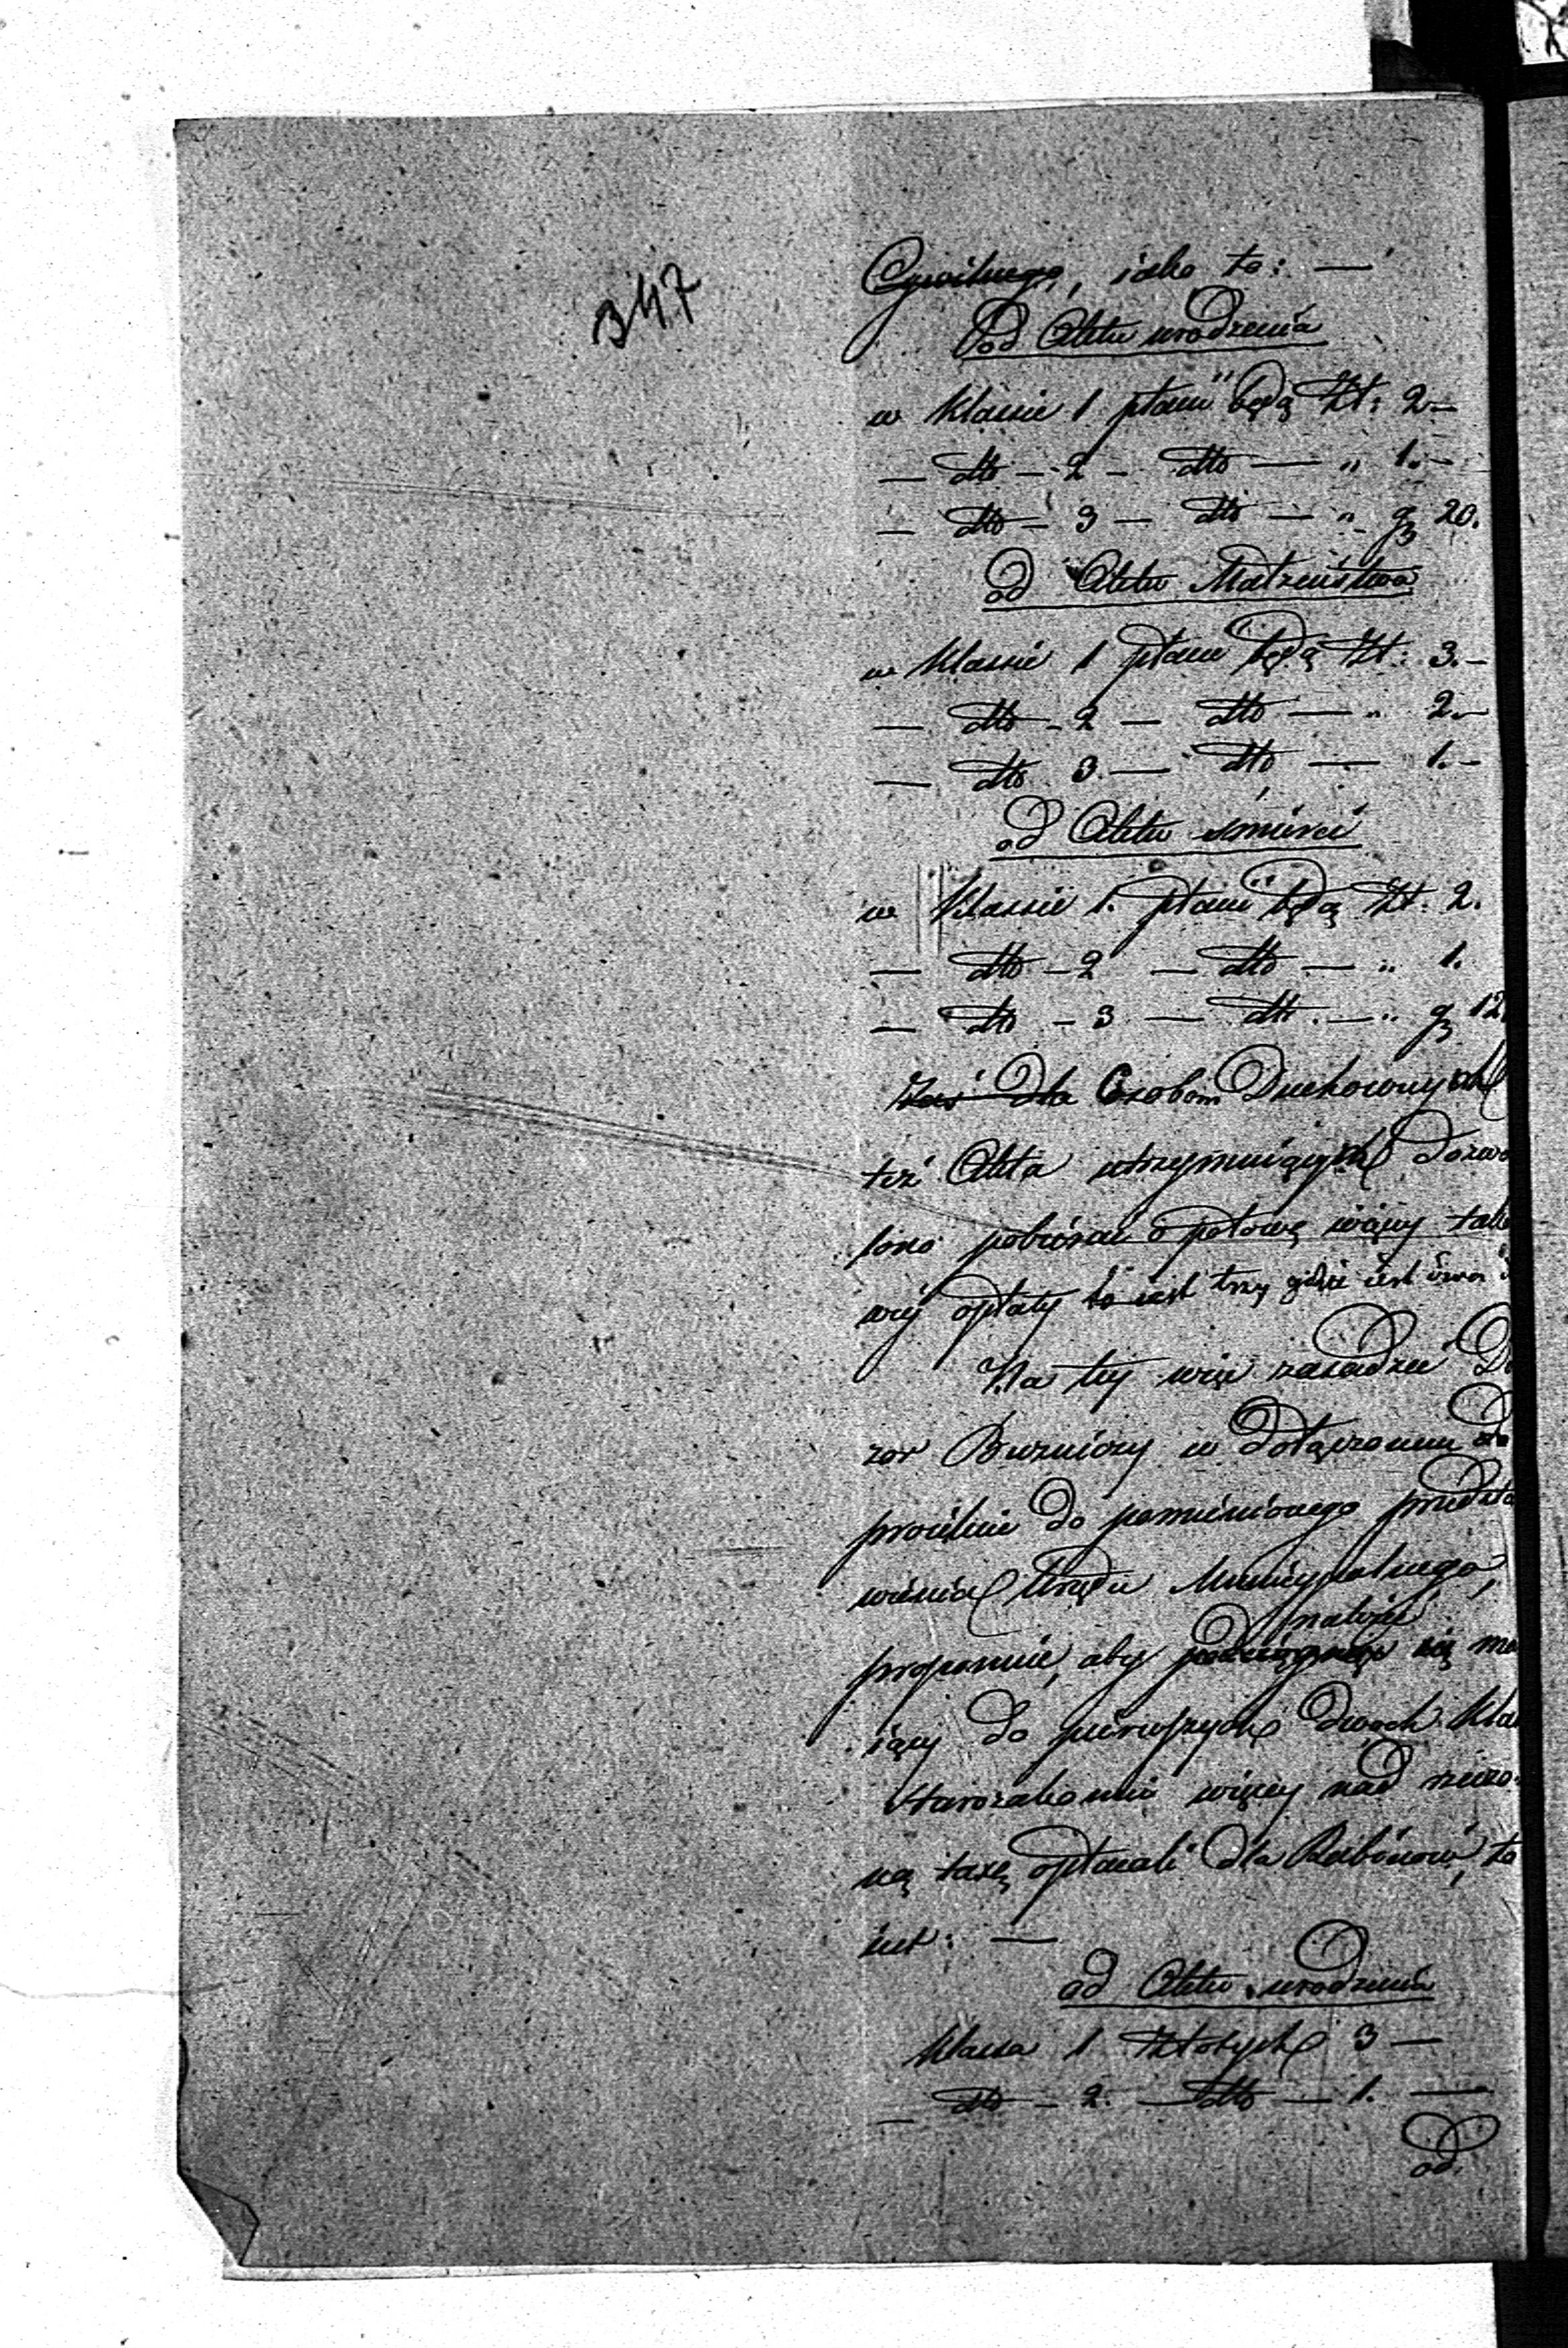 347
Cywilnego, iako to: —
Od Aktu urodzenia
w Klassie 1 płacić będą Zł: 2 —
— dtto — 2 — dtto — " 1. —
— dtto — 3 — dtto — " gr 20.
od Aktu Małżeństwa
w Klassie 1 płacić będą Zł: 3. —
— dtto — 2 — dtto — " 2. —
— dtto 3. — dtto — 1. —
od Aktu śmierci
w Klassie 1. płacić będą Zł. 2.
— dtto — 2 — dtto — " 1.
— dtto — 3 — dtto — " gr 12
zaś dla Osobom Duchownych
też Akta utrzymuiących dozwo
lono pobierać o połowę więcey tako
wéy opłaty to iest trzy gdzie iest
Na tey więc zasadzie Do
zor Bużniczy w dołączonem
do pomienionego przedsta
wienia Urzędu Municypalnego,
należ
proponuie, aby się ma
iący do pierwszych dwóch Klas
Starozakonni więcey nad rzeczo
ną taxę opłacali dla Rabinów, to
iest: —
od Aktu urodzenia
Klassa 1 Złotych 3 —
— dtto — 2. — dtto — 1. —
od